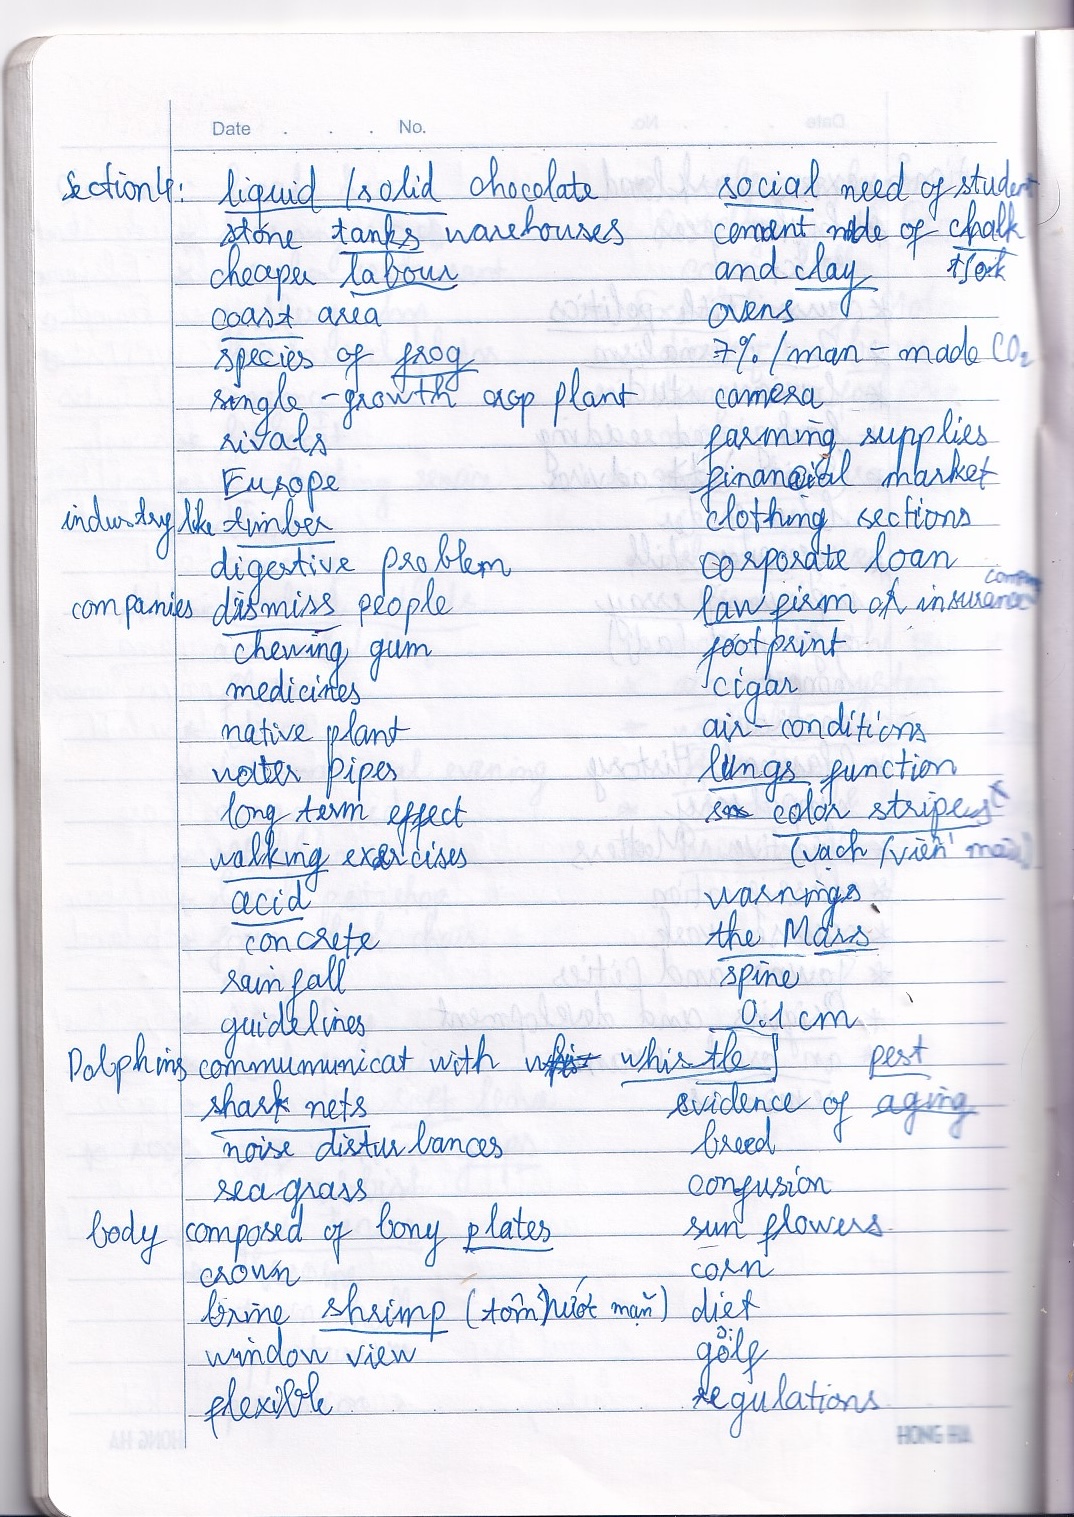 Date . . . No.
Section 4: liquid / solid chocolate
stone tanks warehouses
cheaper labour
coast area
species of frog
single - growth crop plant
rivals
Europe
industry like timber
digestive problem
companies dismiss people
chewing gum
medicines
native plant
water pipes
long term effect
walking exercises
acid
concrete
rainfall
guidelines
Dolphins commumunicat with whistle
shark nets
noise disturbances
sea grass
body composed of bony plates
crown
brine shrimp (tôm nước mặn)
window view
flexible
social need of student
cement made of chalk
and clay
ovens
7% / man - made CO2
camera
farming supplies
financial market
clothing sections
corporate loan
law firm of insurance
company
footprint
cigar
air - conditions
lungs function
color stripes
(vạch / viền
warnings
the Mars
spine
0.1 cm
pest
evidence of aging
breed
confusion
sun flowers
corn
diet
golf
regulations
HONG HA